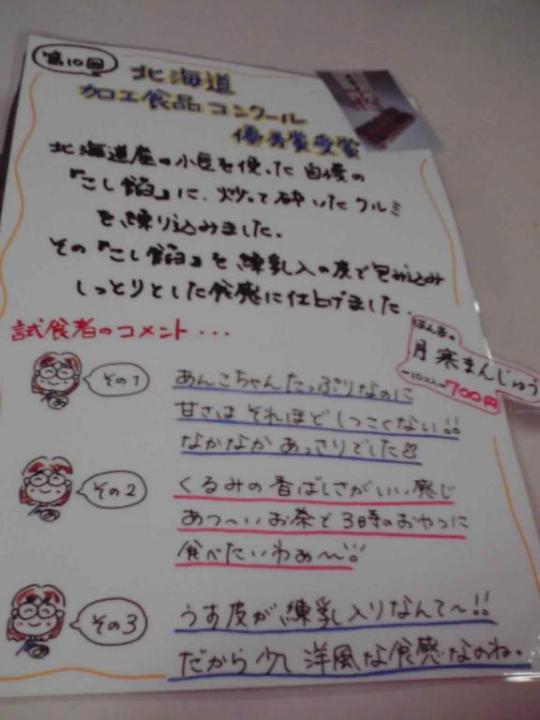 第10回
北海道
加工食品コンクール
優秀賞受賞
北海道産の小豆を使った自慢の
『こし餡』に、炒って砕いたクルミ
を、練り込みました。
その『こし餡』を、練乳入の皮で包み込み
しっとりとした食感に仕上げました。
試食者のコメント・・・
ほんまの
月寒まんじゅう
700円
その1
あんこちゃんたっぷりなのに
甘さは それほどしつこくない!!
なかなか あっさりでした
その2
くるみの香ばしさがいい感じ
あつ〜いお茶で 3時のおやつに
食べたいわぁ〜
その3
うす皮が練乳入りなんて〜!!
だから少し洋風な食感なのね。